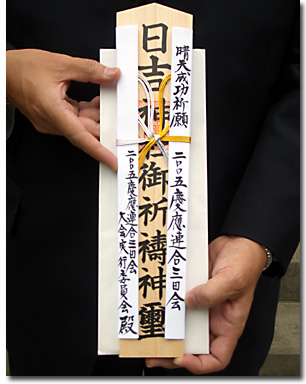 晴天成功祈願
二〇〇五慶應連合三田会
日吉神社御祈禱神璽
二〇〇五慶應連合三田会
大会実行委員会殿